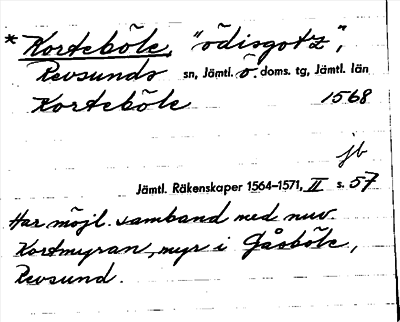 * Korteböle, "ödisgotz",
Revsunds sn, Jämtl. ö. doms. tg, Jämtl. län
Korteböle 1568
jb
Jämtl. Räkenskaper 1564–1571, II s. 57
Har möjl. samband med nuv.
Kortmyran, myr i Gåsböle,
Revsund.